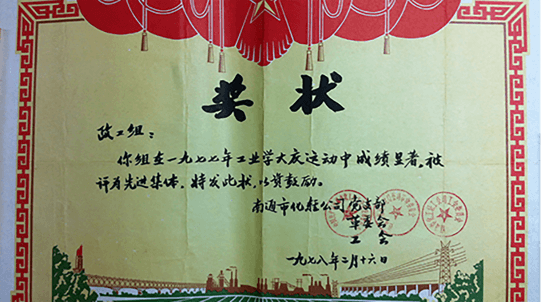 奖状
政工组：
你组在一九七七年工业学大庆运动中成绩显著，被
评为先进集体。特发此状，以资鼓励。
南通市化轻公司党支部
革委会
工会
一九七八年二月十六日